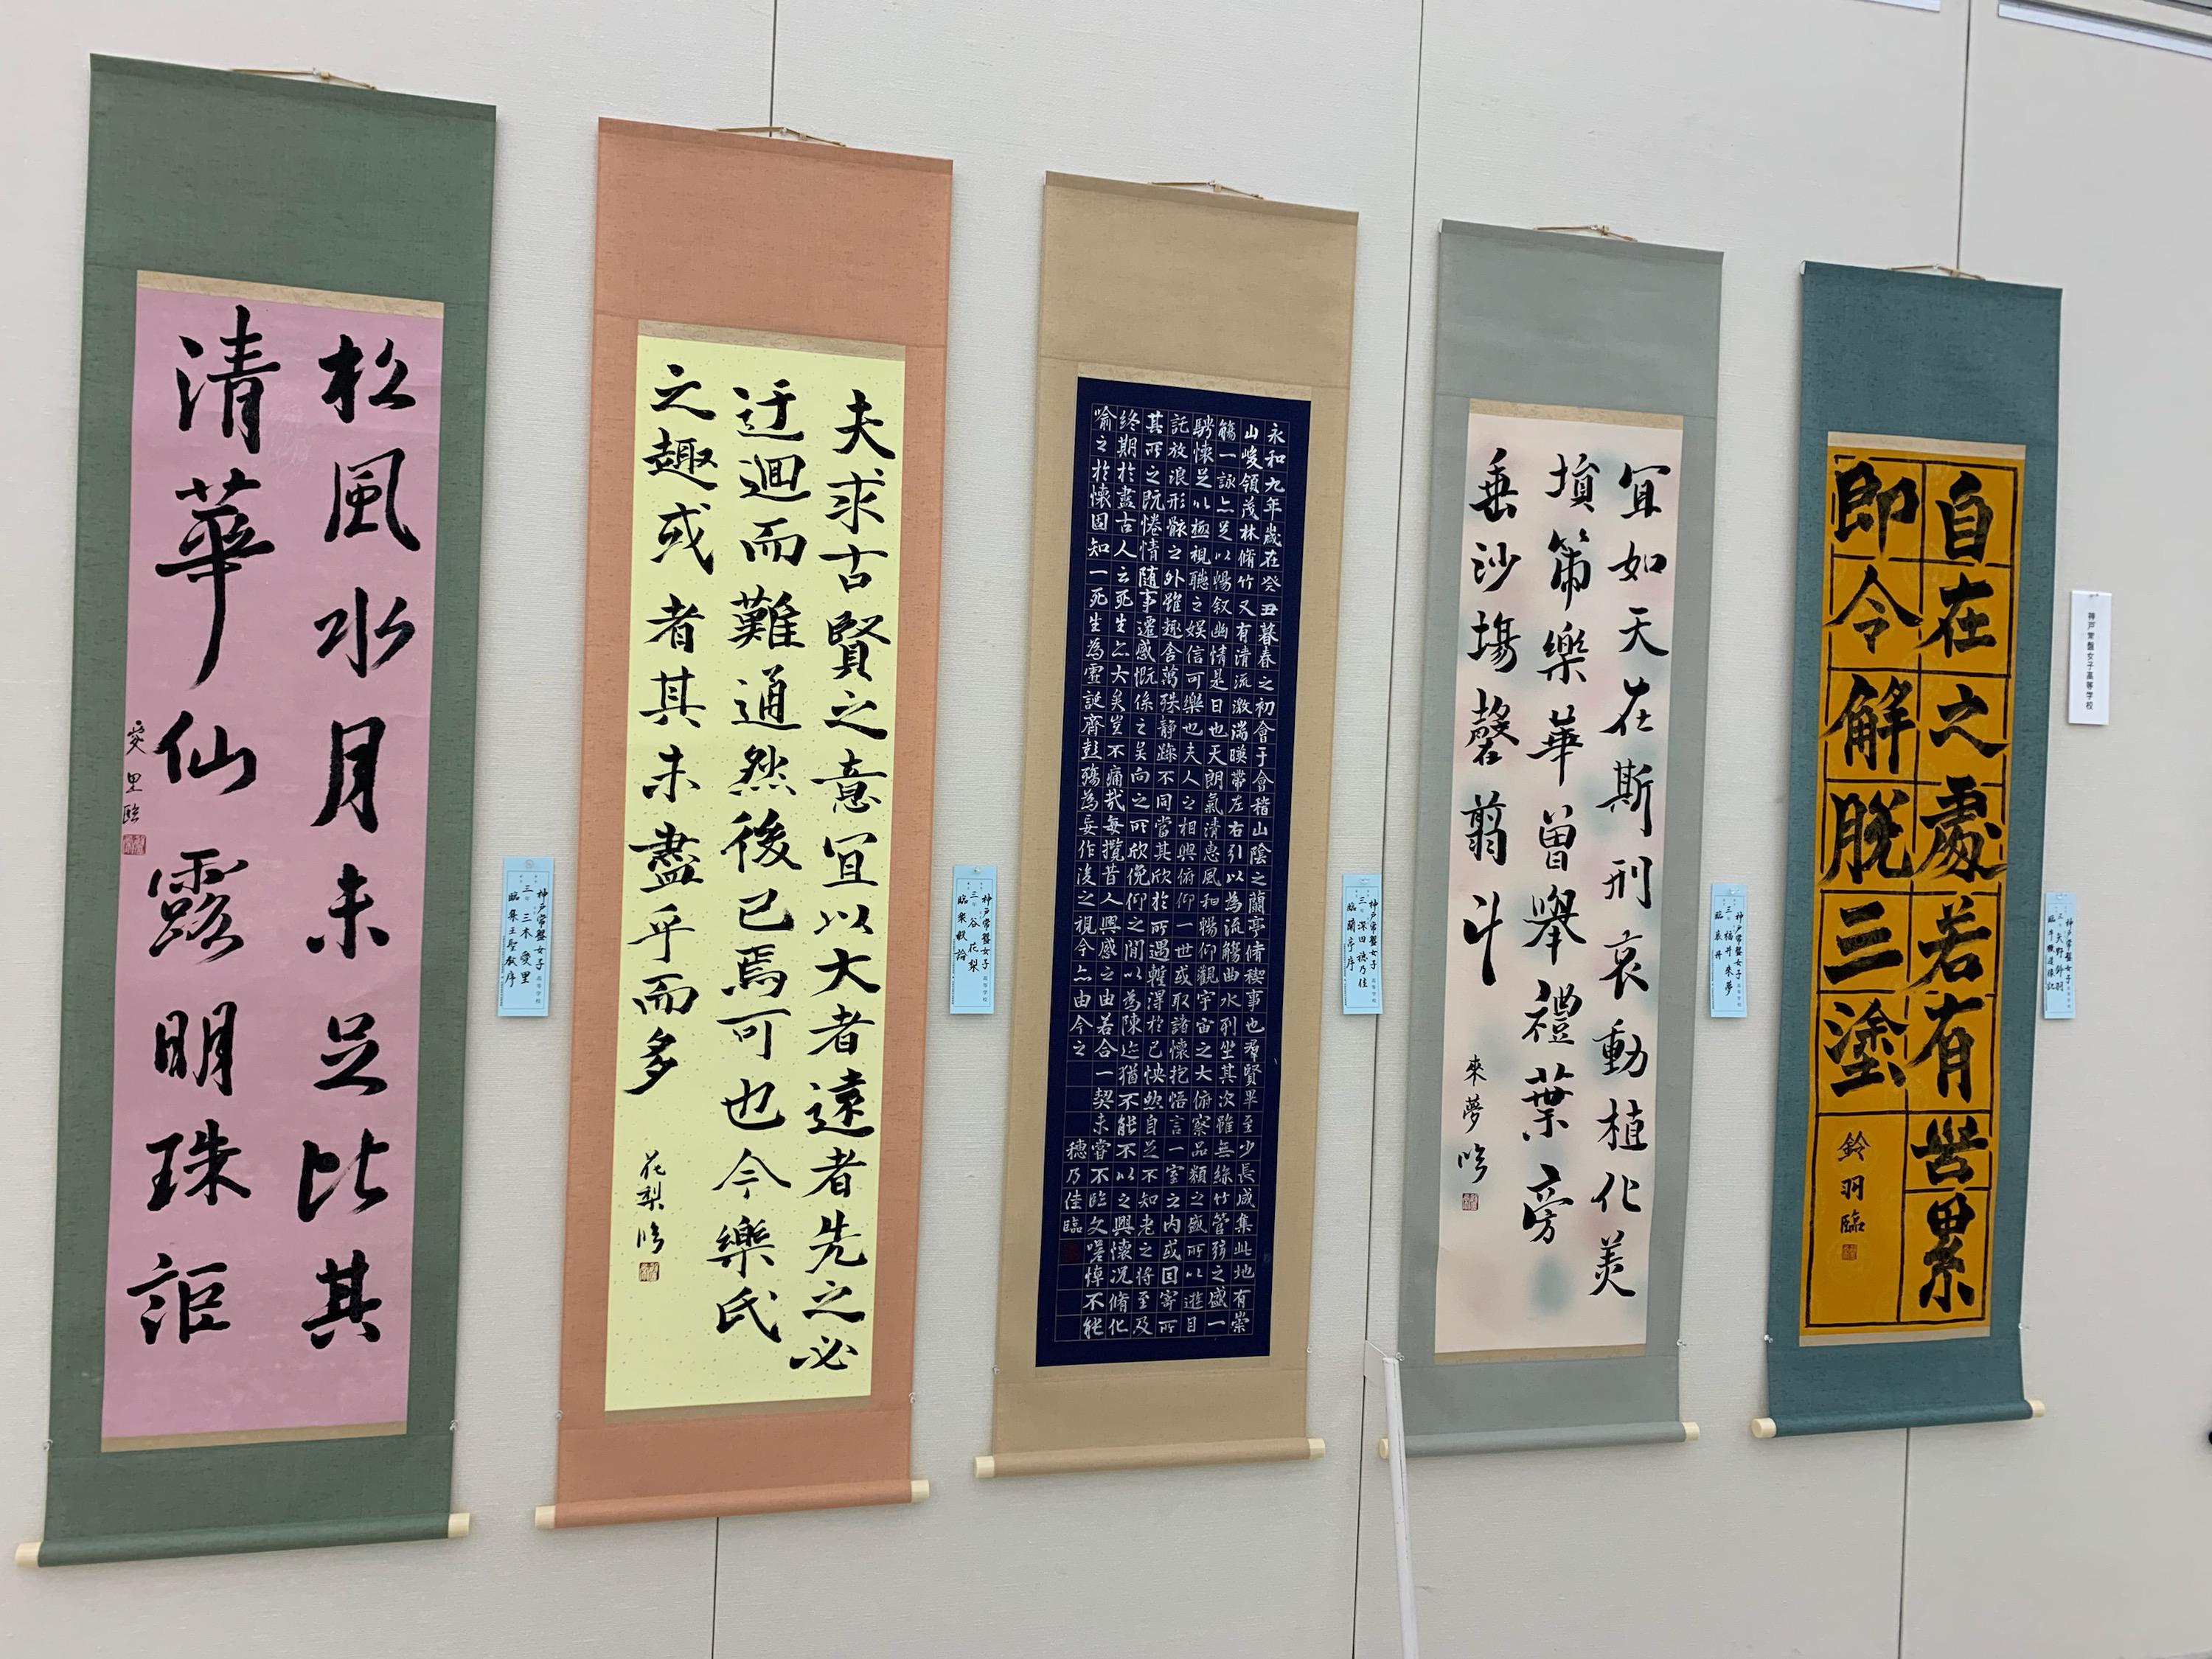 神戸常盤女子高等学校
自在之處若有苦累
即令解脱三塗
鈴羽臨
神戸常盤女子高等学校
三年 矢野鈴羽
臨 牛橛造像記
宜如天在斯刑哀動植化美
墳箒樂華曽舉禮葉旁
垂沙場磬翦斗
來夢臨
神戸常盤女子高等学校
三年 福井来夢
臨 哀冊
永和九年歳在癸丑暮春之初會于會稽山陰之蘭亭脩禊事也羣賢畢至少長咸集此地有崇
山峻領茂林脩竹又有清流激湍暎帶左右引以為流觴曲水列坐其次雖無絲竹管弦之盛一
觴一詠亦足以暢叙幽情是日也天朗氣清恵風和暢仰觀宇宙之大俯察品類之盛所以遊目
騁懐足以極視聽之娯信可樂也夫人之相與俯仰一世或取諸懷抱悟言一室之内或因寄所
託放浪形骸之外雖趣舍萬殊静躁不同當其欣於所遇蹔得於己怏然自足不知老之将至及
其所之既惓情随事遷感慨係之矣向之所欣俛仰之間以為陳迹猶不能不以之興懷况脩化
終期於盡古人云死生亦大矣豈不痛哉每攬昔人興感之由若合一契未嘗不臨文嗟悼不能
喻之於懷固知一死生為虚誕齊彭殤為妄作後之視今亦由今之
穂乃佳臨
神戸常盤女子高等学校
三年 深田穂乃佳
臨 蘭亭序
夫求古賢之意宜以大者遠者先之必
迂迴而難通然後已焉可也今樂氏
之趣或者其未盡乎而多
花梨臨
神戸常盤女子高等学校
三年 谷花梨
臨 楽毅論
松風水月未足比其
清華仙露明珠詎
愛里臨
神戸常盤女子高等学校
三年 三木愛里
臨 集王聖教序